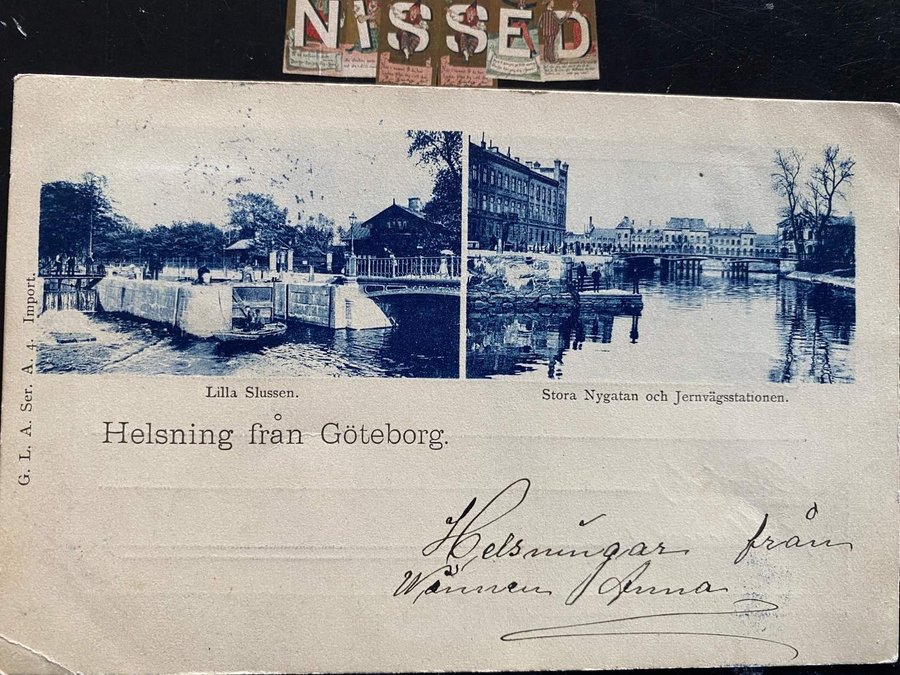 NISSED
Lilla Slussen.
Stora Nygatan och Jernvägsstationen.
Helsning från Göteborg.
G. L. A. Ser. A. 4. Import.
Helsningar från
Wännen Anna